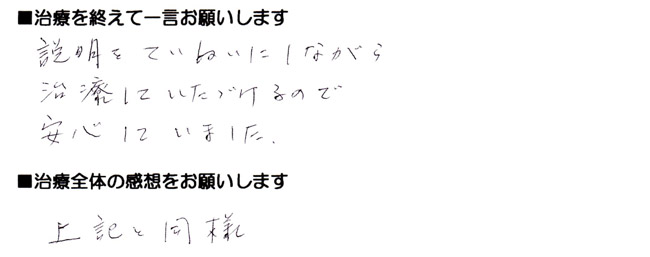 ■治療を終えて一言お願いします
説明をていねいにしながら
治療していただけるので
安心していました.
■治療全体の感想をお願いします
上記と同様